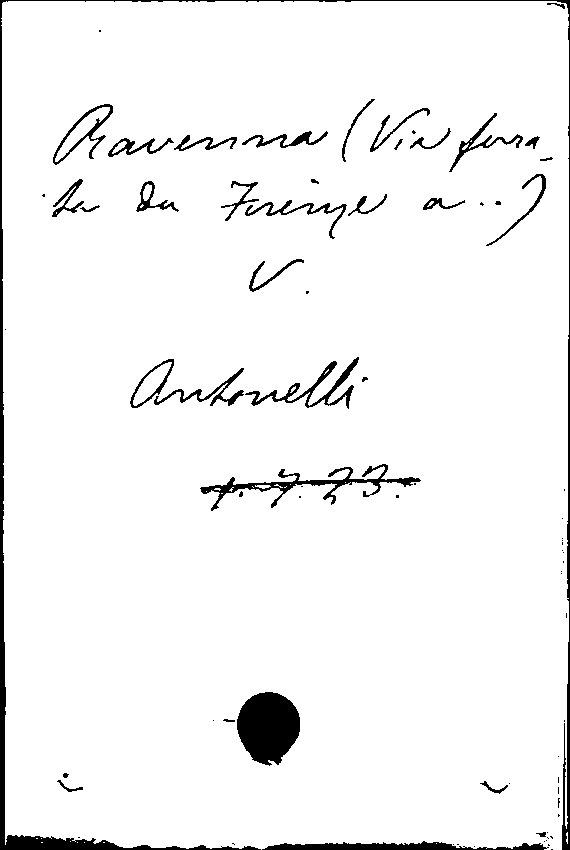 Ravenna (Via ferra-
ta da Firenze a ..)
V.
Antonelli
1. 7. 23.